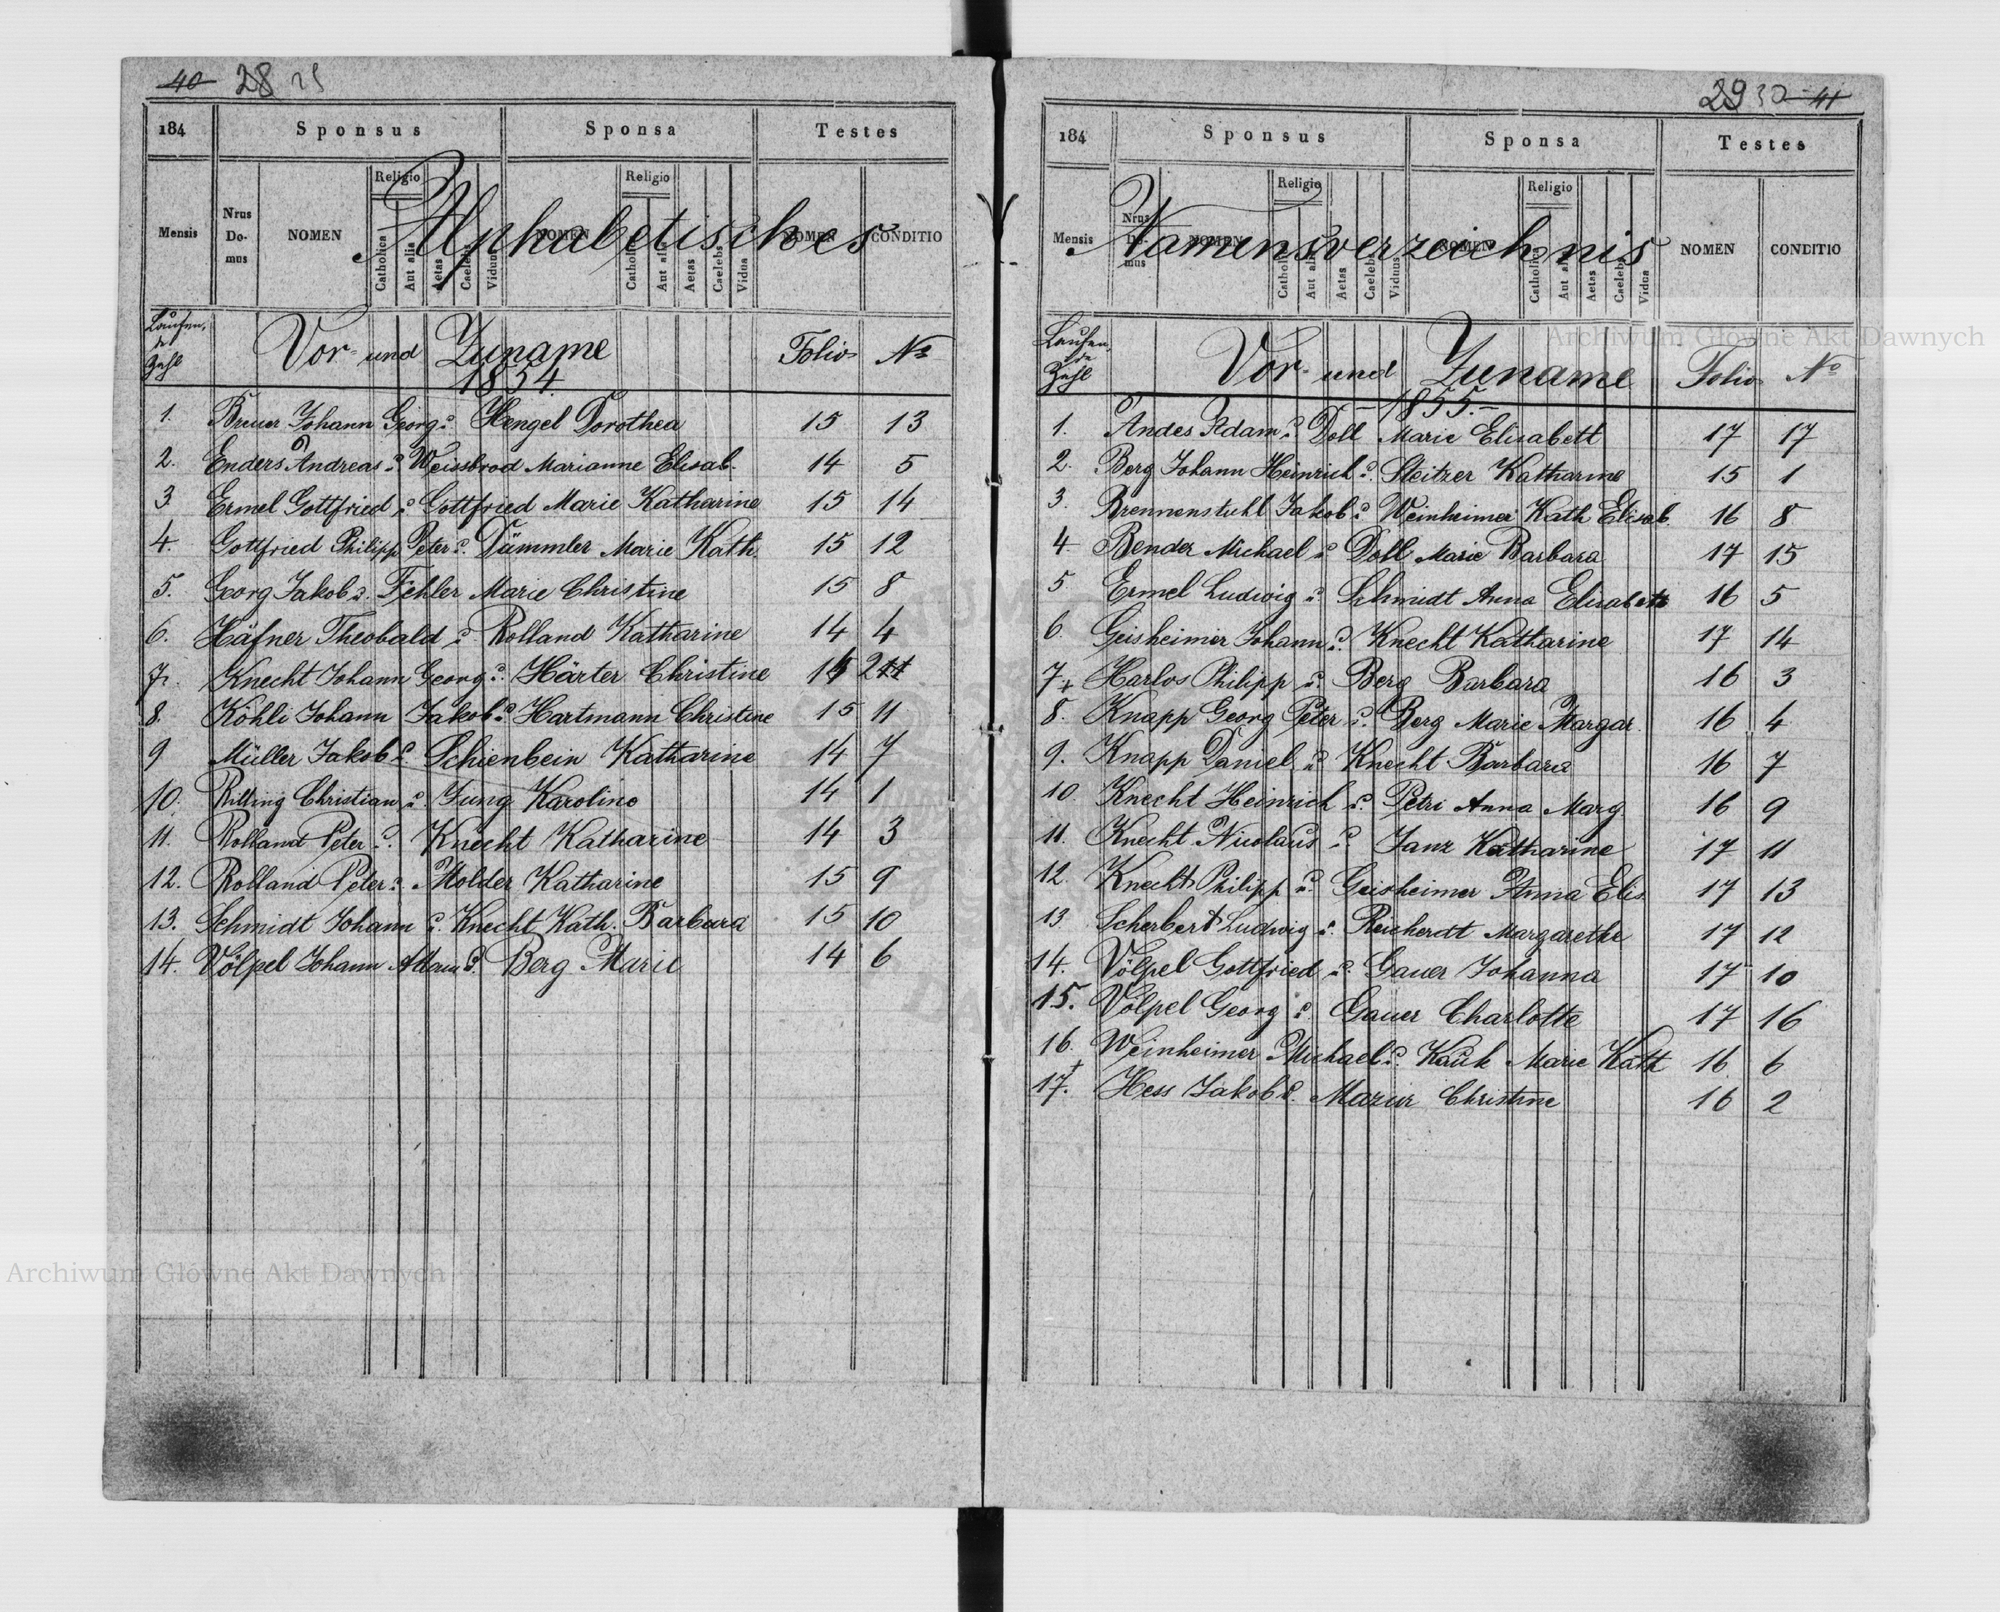 40 28
184 Sponsus Sponsa Testes
Religio Religio
Mensis Nrus Domus NOMEN Catholica Aut alia Aetas Caelebs Viduus NOMEN Catholica Aut alia Aetas Caelebs Vidua NOMEN CONDITIO
Alphabetisches
Laufende Zahl Vor- und Zuname Folio No
1854
1. Breuer Johann Georg u. Hengel Dorothea 15 13
2. Enders Andreas u. Weissbrod Marianne Elisab. 14 5
3 Ermel Gottfried u. Gottfried Marie Katharine 15 14
4. Gottfried Philipp Peter u. Dümmler Marie Kath 15 12
5. Georg Jakob u. Fehler Marie Christine 15 8
6. Häfner Theobald u. Rolland Katharine 14 4
7. Knecht Johann Georg u. Härter Christine 14 2
8. Köhli Johann Jakob u. Hartmann Christine 15 11
9 Müller Jakob u. Schienbein Katharine 14 7
10. Rilling Christian u. Jung Karoline 14 1
11. Rolland Peter u. Knecht Katharine 14 3
12. Rolland Peter u. Molder Katharine 15 9
13. Schmidt Johann u. Knecht Kath. Barbara 15 10
14. Völpel Johann Adam u. Berg Marie 14 6
29 30 41
184 Sponsus Sponsa Testes
Religio Religio
Mensis Nrus Domus NOMEN Catholica Aut alia Aetas Caelebs Viduus NOMEN Catholica Aut alia Aetas Caelebs Vidua NOMEN CONDITIO
Namensverzeichnis
Laufende Zahl Vor- und Zuname Folio No
-1855.-
1. Andes Adam u. Doll Marie Elisabett 17 17
2. Berg Johann Heinrich u. Steitzer Katharine 15 1
3. Brennenstuhl Jakob u. Weinheimer Kath Elisab. 16 8
4 Bender Michael u. Doll Marie Barbara 17 15
5 Ermel Ludwig u. Schmidt Anna Elisabett 16 5
6. Geisheimer Johann u. Knecht Katharine 17 14
7+ Harlos Philipp u. Berg Barbara 16 3
8. Knapp Georg Peter u. Berg Marie Margar. 16 4
9. Knapp Daniel u. Knecht Barbara 16 7
10. Knecht Heinrich u. Petri Anna Marg. 16 9
11. Knecht Nicolaus u. Janz Katharine 17 11
12. Knecht Philipp u. Geisheimer Anna Elis. 17 13
13. Scherbert Ludwig u. Reicherdt Margarethe 17 12
14. Völpel Gottfried u. Gauer Johanna 17 10
15. Völpel Georg u. Gauer Charlotte 17 16
16. Weinheimer Michael u. Kauk Marie Kath 16 6
17.+ Hess Jakob u. Mazur Christine 16 2
Archiwum Główne Akt Dawnych
Archiwum Główne Akt Dawnych